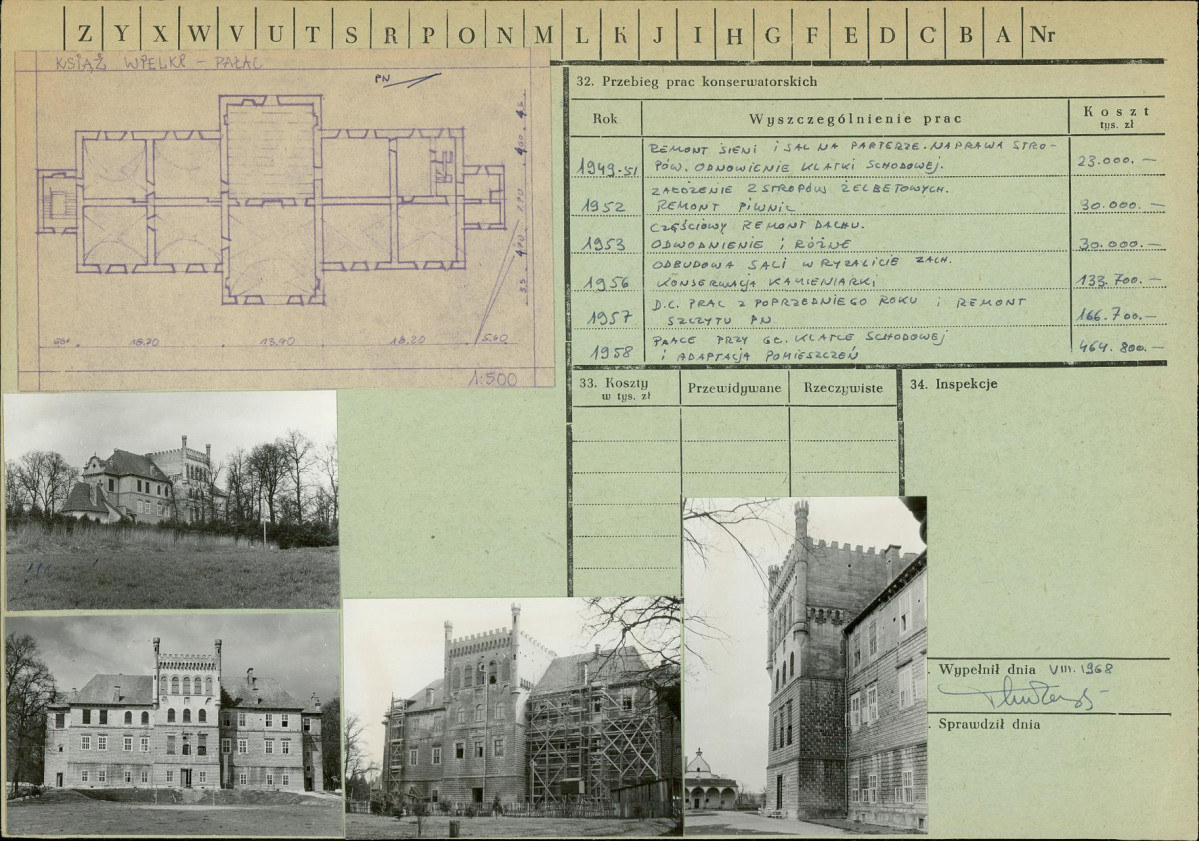 Z Y X W V U T S R P O N M L K J I H G F E D C B A Nr
KSIĄŻ WIELKI - PAŁAC
PN
13,90
16,20
5,60
1:500
32. Przebieg prac konserwatorskich
Rok
Wyszczególnienie prac
Koszt
tys. zł
1949-51
REMONT SIENI i SAL NA PARTERZE. NAPRAWA STRO-
PÓW. ODNOWIENIE KLATKI SCHODOWEJ.
23.000.—
1952
ZAŁOŻENIE 2 STROPÓW ŻELBETOWYCH.
REMONT PIWNIC
30.000.—
1953
CZĘŚCIOWY REMONT DACHU.
ODWODNIENIE i RÓŻNE
30.000.—
1956
ODBUDOWA SALI W RYZALICIE ZACH.
KONSERWACJA KAMIENIARKI
133.700.—
1957
D.C. PRAC Z POPRZEDNIEGO ROKU i REMONT
SZCZYTU PN
166.700.—
1958
PRACE PRZY GŁ. KLATCE SCHODOWEJ
i ADAPTACJA POMIESZCZEŃ
464.800.—
33. Koszty
w tys. zł
Przewidywane
Rzeczywiste
34. Inspekcje
Wypełnił dnia VIII. 1968
Sprawdził dnia